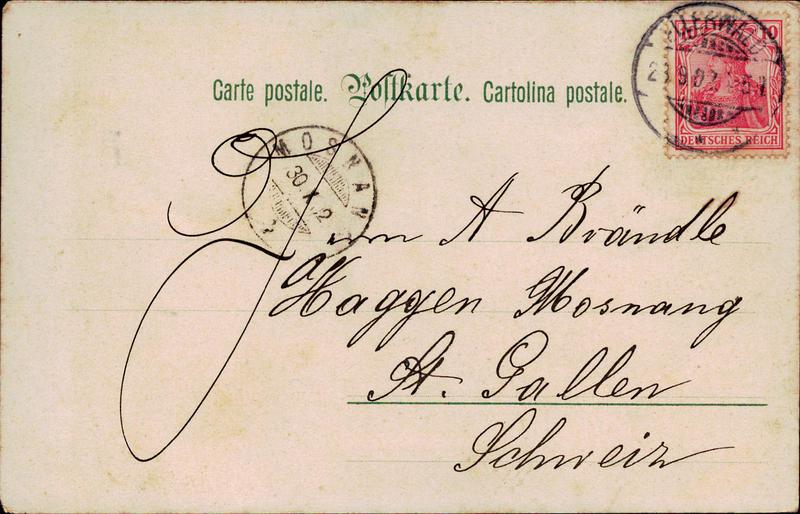 Carte postale. Postkarte. Cartolina postale.
10
DEUTSCHES REICH
MOSNAN
30. X. 02
A Brändle
Haggen Mosnang
St. Gallen
Schweiz